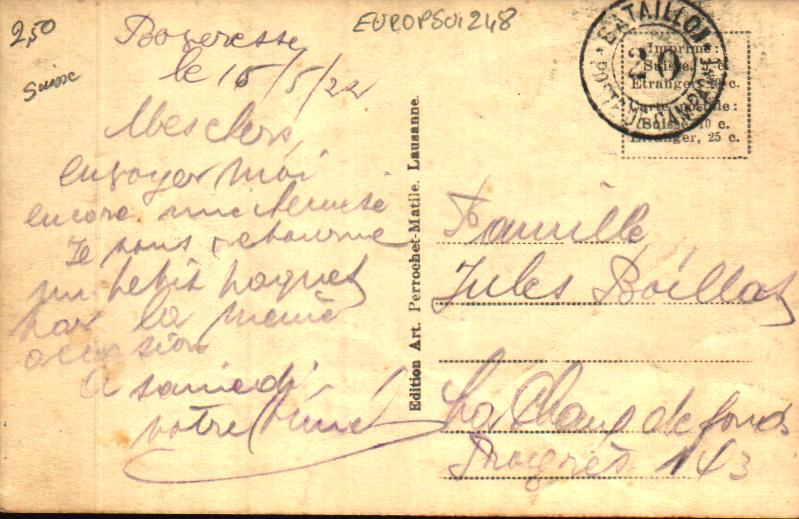 2,50
Suisse
EUROPSUI248
le 16/5/22
Mes chers,
envoyer moi
encore une chemise
Je vous retourne
un petit paquet
par la même
occasion
A samedi
votre
Edition Art. Perrochet-Matile. Lausanne.
BATAILLON
20
POSTE DE CAMPAGNE
Imprimé:
Suisse, c.
Etranger, c.
Carte postale:
Suisse, 10 c.
Etranger, 25 c.
Famille
Jules Boillat
La Chaux de fonds
Progrès 143